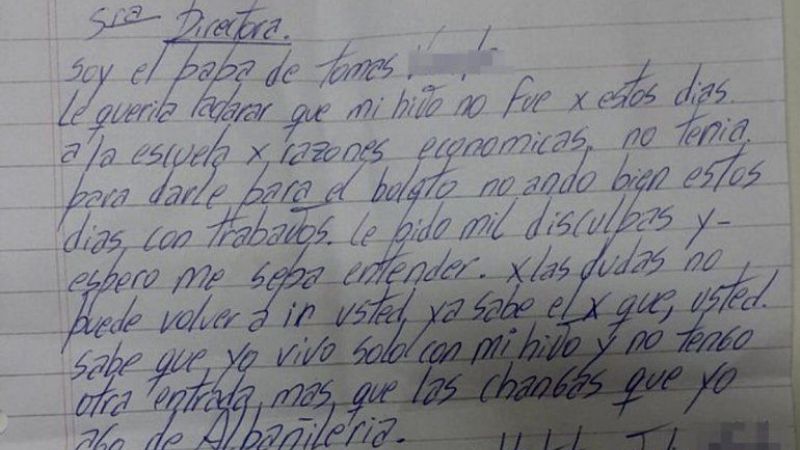 Sra Directora.
Soy el papa de tomas
Le queria aclarar que mi hijo no fue x estos dias.
a la escuela x razones economicas. no tenia
para darle para el boleto no ando bien estos
dias, con trabajos. Le pido mil disculpas y-
espero me sepa entender. x las dudas no
puede volver a ir usted, ya sabe el x que, usted.
sabe que, yo vivo solo con mi hijo y no tengo
otra entrada, mas que las changas que yo
ago de Albañileria.